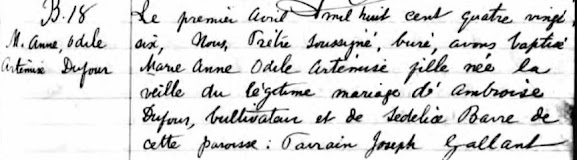 B. 18
M. Anne, Odile
Artémise Dufour
Le premier Avril mil huit cent quatre vingt
six, Nous, Prêtre soussigné, curé, avons baptisé
Marie Anne Odile Artémise fille née la
veille du légitime mariage d'Ambroise
Dufour, cultivateur et de Sedelice Barre de
cette paroisse : Parrain Joseph Gallant